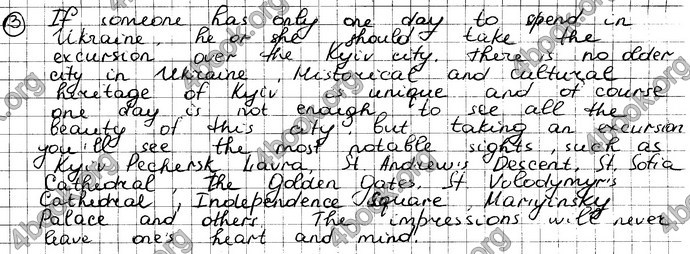 ③ If someone has only one day to spend in
Ukraine, he or she should take the
excursion over the Kyiv city. There is no older
city in Ukraine. Historical and cultural
heretage of Kyiv is unique and of course
one day is not enough to see all the
beauty of this city, but taking an excursion
you'll see the most notable sights, such as
Kyiv Pechersk Lavra, St Andrew's Descent, St. Sofia
Cathedral, The Golden Gates, St Volodymyr's
Cathedral, Independence Square, Mariyinsky
Palace and others. The impressions will never
leave one's heart and mind.
4book.org
4book.org
4book.org
4book.org
4book.org
4book.org